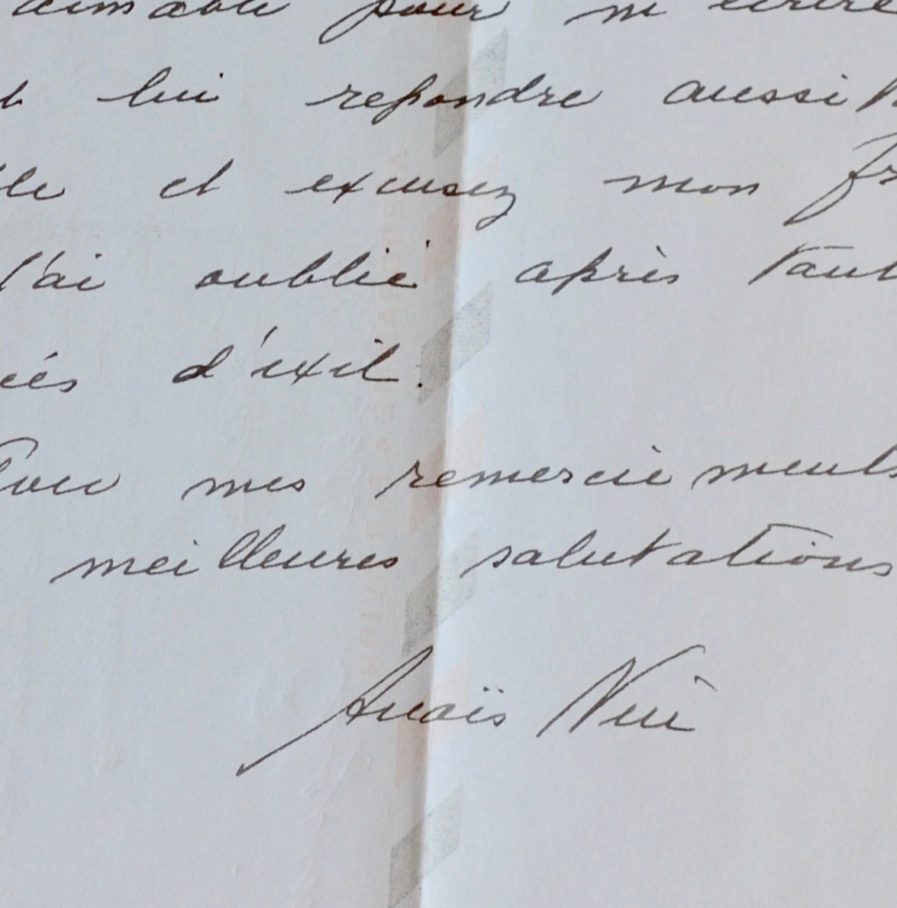 aimable pour m'écrire
lui répondre aussi
et excusez mon
l'ai oublié après tant
d'exil.
Avec mes remerciements
meilleures salutations
Anaïs Nin